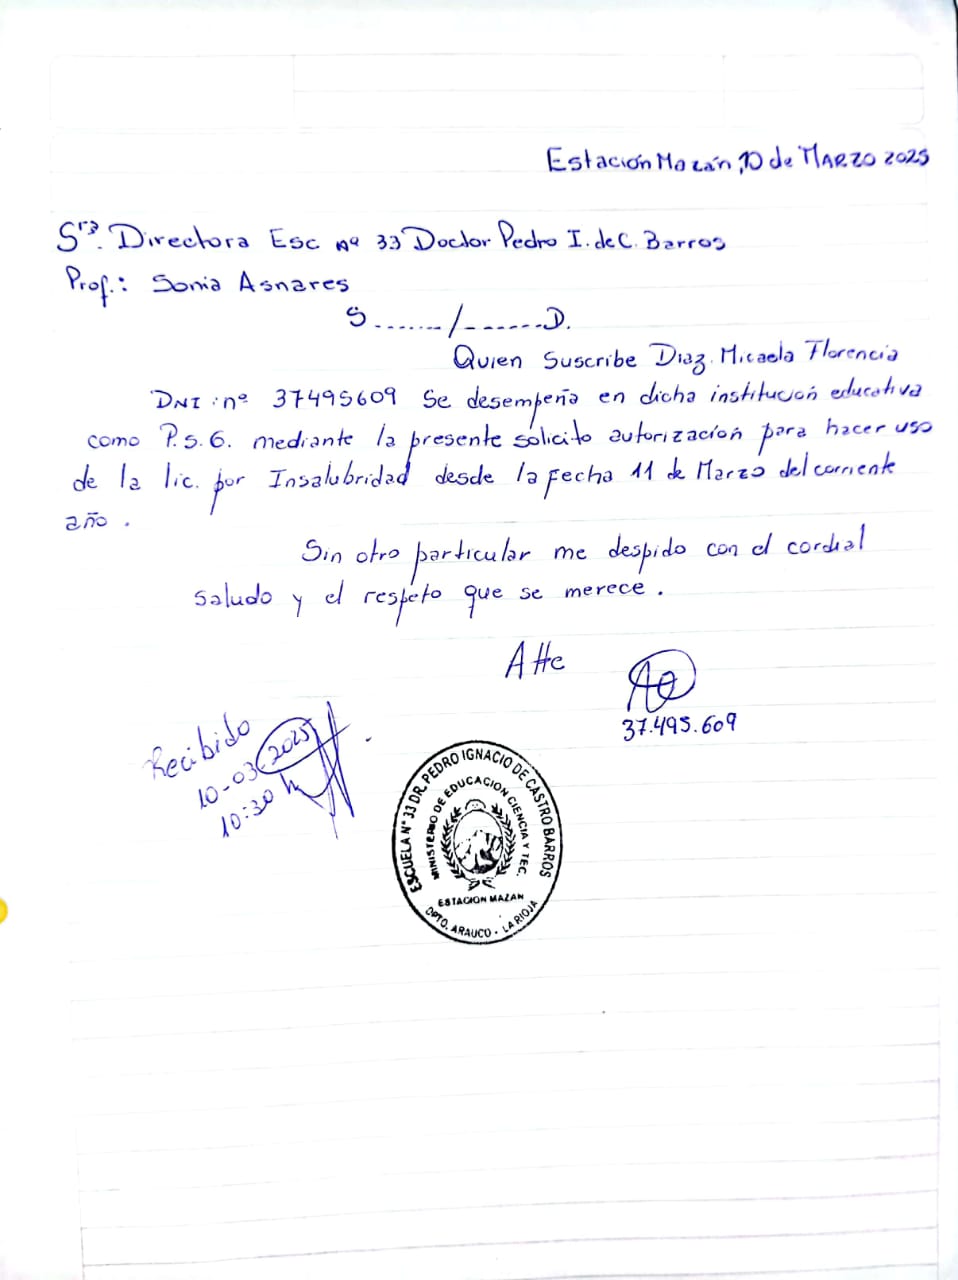 Estación Mazán, 10 de MARZO 2025
Srª. Directora Esc Nº 33 Doctor Pedro I. de C. Barros
Prof.: Sonia Asnares
S......./.......D.
Quien Suscribe Diaz. Micaela Florencia
DNI: nº 37495609 Se desempeña en dicha institución educativa
como P.S.G. mediante la presente solicito autorización para hacer uso
de la lic. por Insalubridad desde la fecha 11 de Marzo del corriente
año.
Sin otro particular me despido con el cordial
saludo y el respeto que se merece.
Atte
37.495.609
Recibido
10-03-2025
10:30 h
ESCUELA Nº 33 DR. PEDRO IGNACIO DE CASTRO BARROS
MINISTERIO DE EDUCACION CIENCIA Y TEC.
ESTACION MAZAN
DPTO. ARAUCO - LA RIOJA